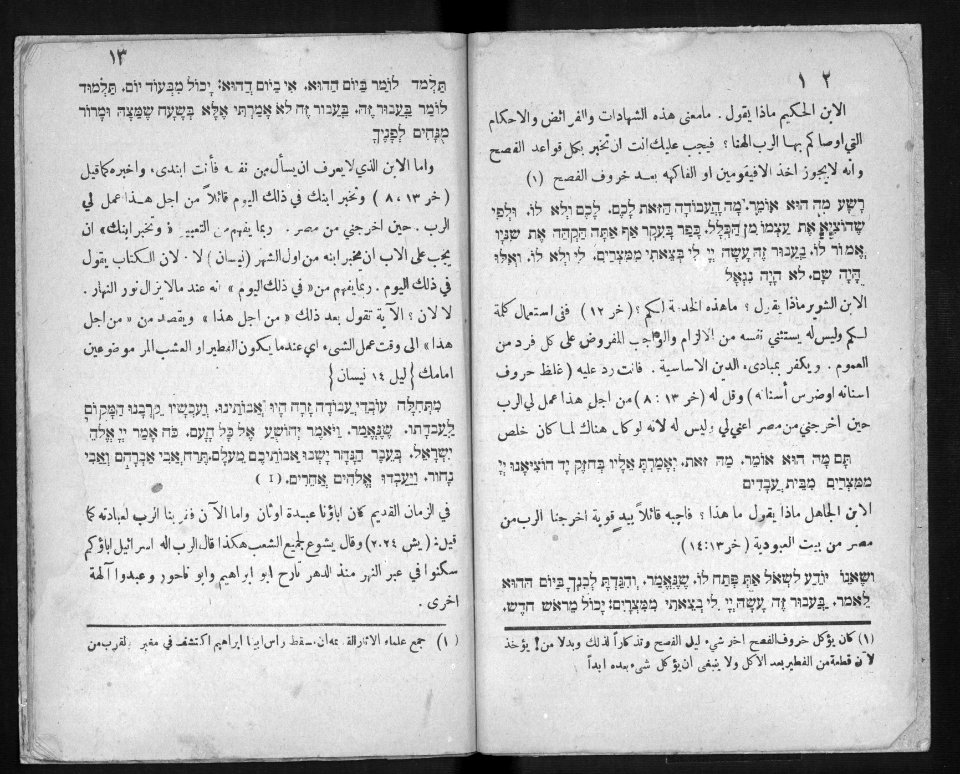 ١٢
الابن الحكيم ماذا يقول . مامعنى هذه الشهادات والفرائض والاحكام
التي اوصاكم بها الرب الهنا ؟ فيجب عليك انت ان تخبر بكل قواعد الفصح
وانه لايجوز اخذ الافيقومين او الفاكهه بعد خروف الفصح (١)
רָשָׁע מַה הוּא אוֹמֵר. מָה הָעֲבוֹדָה הַזֹּאת לָכֶם. לָכֶם וְלֹא לוֹ. וּלְפִי
שֶׁהוֹצִיא אֶת עַצְמוֹ מִן הַכְּלָל. כָּפַר בָּעִקָּר אַף אַתָּה הַקְהֵה אֶת שִׁנָּיו
וֶאֱמוֹר לוֹ. בַּעֲבוּר זֶה עָשָׂה יְיָ לִי בְּצֵאתִי מִמִּצְרַיִם. לִי וְלֹא לוֹ. וְאִלּוּ
הָיָה שָׁם. לֹא הָיָה נִגְאָל
الابن الشرير ماذا يقول ؟ ماهذه الخدمة لكم ؟ (خر ١٢) ففى استعمال كلمة
لكم وليس له يستثني نفسه من الالزام والواجب المفروض على كل فرد من
العموم . ويكفر بمبادىء الدين الاساسية . فانت رد عليه (غلظ حروف
اسنانه اوضرس أسنانه) وقل له (خر ١٣ : ٨) من اجل هذا عمل لي الرب
حين اخرجني من مصر اعني لي وليس له لانه لوكان هناك لما كان خلص
תָּם מַה הוּא אוֹמֵר. מַה זֹאת. וְאָמַרְתָּ אֵלָיו בְּחֹזֶק יָד הוֹצִיאָנוּ יְיָ
מִמִּצְרַיִם מִבֵּית עֲבָדִים
الابن الجاهل ماذا يقول ما هذا ؟ فاجبه قائلاً بيد قوية أخرجنا الرب من
مصر من بيت العبودية (خر ١٣:١٤)
וְשֶׁאֵנוֹ יוֹדֵעַ לִשְׁאֹל אַתְּ פְּתַח לוֹ. שֶׁנֶּאֱמַר. וְהִגַּדְתָּ לְבִנְךָ בַּיּוֹם הַהוּא
לֵאמֹר. בַּעֲבוּר זֶה עָשָׂה יְיָ לִי בְּצֵאתִי מִמִּצְרָיִם: יָכוֹל מֵרֹאשׁ חֹדֶשׁ.
(١) كان يؤكل خروف الفصح اخر شيء ليل الفصح وتذكاراً لذلك وبدلا من يؤخذ
لآن قطعة من الفطير بعد الاكل ولا ينبغى ان يؤكل شىء بعده ابداً
١٣
תַּלְמֻד לוֹמַר בַּיּוֹם הַהוּא. אִי בַיּוֹם הַהוּא: יָכוֹל מִבְּעוֹד יוֹם. תַּלְמוּד
לוֹמַר בַּעֲבוּר זֶה. בַּעֲבוּר זֶה לֹא אָמַרְתִּי אֶלָּא בְּשָׁעָה שֶׁמַּצָּה וּמָרוֹר
מֻנָּחִים לְפָנֶיךָ
واما الابن الذي لايعرف ان يسأل من نفسه فأنت ابتدىء واخبره كما قيل
(خر ١٣ ، ٨) وتخبر ابنك في ذلك اليوم قائلاً من اجل هذا عمل لي
الرب . حين اخرجني من مصر . ربما يفهم من التعبير « وتخبر ابنك » ان
يجب على الاب ان يخبر ابنه من اول الشهر (نيسان) لا . لان الكتاب يقول
في ذلك اليوم . ربما يفهم من « في ذلك اليوم » انه عند مالايزال نور النهار .
لا لان ؟ الآية تقول بعد ذلك « من اجل هذا » ويقصد من « من اجل
هذا » الى وقت عمل الشىء اي عندما يكون الفطير او العشب المر موضوعين
امامك {ليل ١٤ نيسان}
מִתְּחִלָּה עוֹבְדֵי עֲבוֹדָה זָרָה הָיוּ אֲבוֹתֵינוּ. וְעַכְשָׁיו קֵרְבָנוּ הַמָּקוֹם
לַעֲבֹדָתוֹ. שֶׁנֶּאֱמַר. וַיֹּאמֶר יְהוֹשֻׁעַ אֶל כָּל הָעָם. כֹּה אָמַר יְיָ אֱלֹהֵי
יִשְׂרָאֵל. בְּעֵבֶר הַנָּהָר יָשְׁבוּ אֲבוֹתֵיכֶם מֵעוֹלָם. תֶּרַח אֲבִי אַבְרָהָם וַאֲבִי
נָחוֹר. וַיַּעַבְדוּ אֱלֹהִים אֲחֵרִים. (١)
في الزمان القديم كان اباؤنا عبدة اوثان واما الآن فقربنا الرب لعبادته كما
قيل : (يش ٢،٢٤) وقال يشوع لجميع الشعب هكذا قال الرب اله اسرائيل اباؤكم
سكنوا في عبر النهر منذ الدهر تارح ابو ابراهيم وابو ناحور وعبدوا آلهة
اخرى .
(١) جمع علماء الاثار سقط راس ابينا ابراهيم اكتشف في بالقرب من